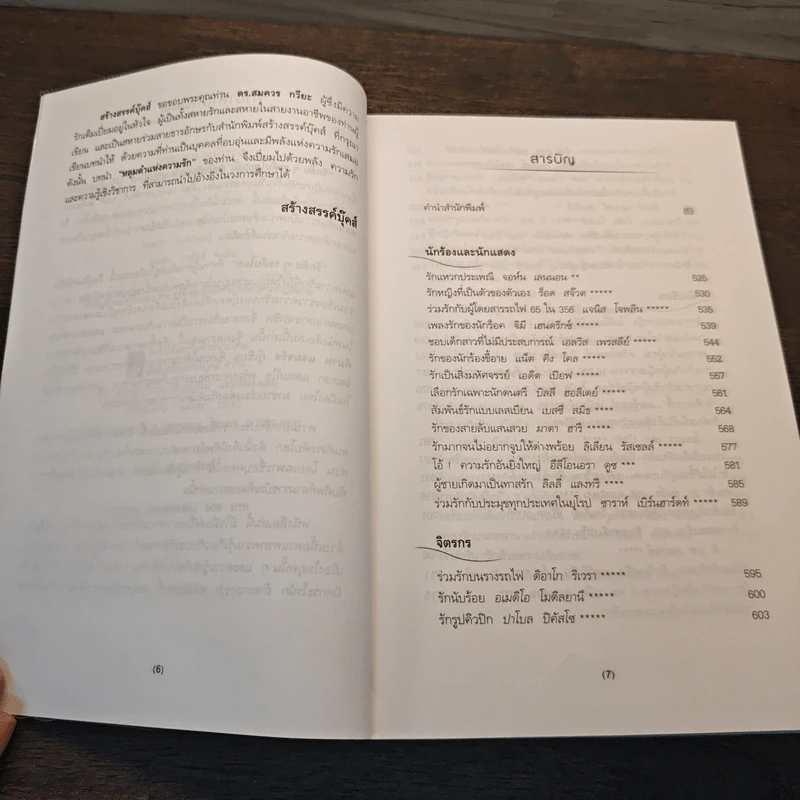 สร้างสรรค์บุ๊คส์ ขอขอบพระคุณท่าน ดร.สมควร กวียะ ผู้ซึ่งมีความ
รักเต็มเปี่ยมอยู่ในหัวใจ ผู้เป็นทั้งสหายรักและสหายในสายงานอาชีพของท่านผู้
เขียน และเป็นสหายร่วมสายธารอักษรกับสำนักพิมพ์สร้างสรรค์บุ๊คส์ ที่กรุณา
เขียนบทนำให้ ด้วยความที่ท่านเป็นบุคคลที่อบอุ่นและมีพลังแห่งความรักเสมอ
ดังนั้น บทนำ "หลุมดำแห่งความรัก" ของท่าน จึงเปี่ยมไปด้วยพลัง ความรัก
และความรู้เชิงวิชาการ ที่สามารถนำไปอ้างอิงในวงการศึกษาได้
สร้างสรรค์บุ๊คส์
(6)
สารบัญ
คำนำสำนักพิมพ์ (5)
นักร้องและนักแสดง
รักแหวกประเพณี จอห์น เลนนอน ** 525
รักหญิงที่เป็นตัวของตัวเอง ร็อด สจ๊วต ***** 530
ร่วมรักกับผู้โดยสารรถไฟ 65 ใน 356 แจนิส โจพลิน ***** 535
เพลงรักของนักร็อค จิมี เฮนดริกซ์ ***** 539
ชอบเด็กสาวที่ไม่มีประสบการณ์ เอลวิส เพรสลีย์ ***** 544
รักของนักร้องขี้อาย แน็ต คิง โคล ***** 552
รักเป็นสิ่งมหัศจรรย์ เอดิต เปียฟ ***** 557
เลือกรักเฉพาะนักดนตรี บิลลี ฮอลิเดย์ ***** 561
สัมพันธ์รักแบบเลสเบียน เบสซี สมิธ **** 564
รักของสายลับแสนสวย มาตา ฮารี ***** 568
รักมากจนไม่อยากจูบให้ต่างพร้อย ลิเลียน รัสเซลล์ ***** 577
โอ้ ! ความรักอันยิ่งใหญ่ อีลีโอนอรา ดูซ *** 581
ผู้ชายเกิดมาเป็นทาสรัก ลิลลี่ แลงทรี **** 585
ร่วมรักกับประมุขทุกประเทศในยุโรป ซาราห์ เบิร์นฮาร์ดท์ ***** 589
จิตรกร
ร่วมรักบนรางรถไฟ ดิอาโก ริเวรา ***** 595
รักนับร้อย อเมดิโอ โมดิลยานี ***** 600
รักรูปคิวปิก ปาโบล ปิคัสโซ ***** 603
(7)